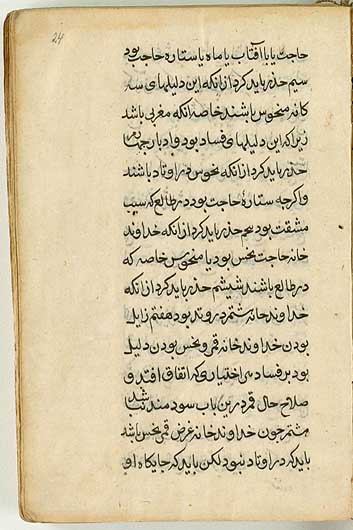 24
حاجت یا با آفتاب یا ماه یا ستاره حاجت بود
سیم حذر باید کرد از انکه این دلیلهای سه
کانه منحوس باشند خاصه انکه مغربی باشد
زیرا که این دلیلهای فساد بود و ادبار چهارم
حذر باید کرد از انکه نحوس در اوتاد باشند
و اکرچه ستاره حاجت بود در طالع که سبب
مشقت بود پنجم حذر باید کرد از انکه خداوند
خانه حاجت نحس بود یا منحوس خاصه که
در طالع باشند ششم حذر باید کرد از انکه
خداوند خانه ششم در وتد بود هفتم زایل
بودن خداوند خانه قمر و نحس بودن دلیل
بود بر فساد هر اختیاری که اتفاق افتد و
صلاح حال قمر درین باب سودمند نباشد
هشتم چون خداوند خانه غرض قمر نحس باشد
باید که در اوتاد نبود لکن باید که جایکاه او